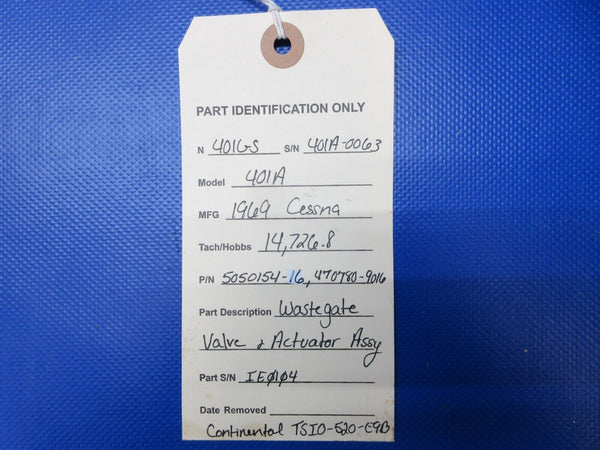 PART IDENTIFICATION ONLY
N 401GS S/N 401A-0063
Model 401A
MFG 1969 Cessna
Tach/Hobbs 14,726.8
P/N 5050154-16, 470780-9016
Part Description Wastegate
Valve & Actuator Assy
Part S/N IE0104
Date Removed
Continental TSIO-520-E9B